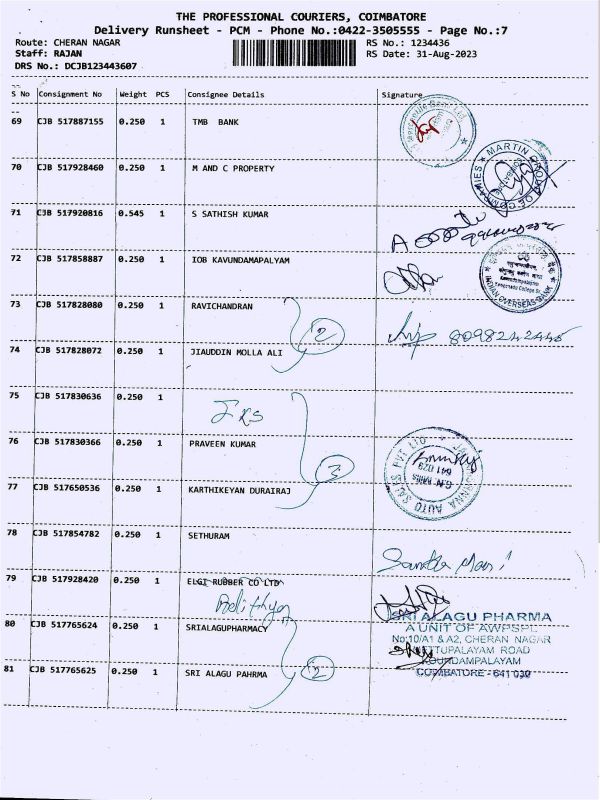 THE PROFESSIONAL COURIERS, COIMBATORE
Delivery Runsheet - PCM - Phone No.:0422-3505555 - Page No.:7
Route: CHERAN NAGAR RS No.: 1234436
Staff: RAJAN RS Date: 31-Aug-2023
DRS No.: DCJB123443607
S No Consignment No Weight PCS Consignee Details Signature
69 CJB 517887155 0.250 1 TMB BANK
70 CJB 517928460 0.250 1 M AND C PROPERTY
MARTIN
71 CJB 517920816 0.545 1 S SATHISH KUMAR
72 CJB 517858887 0.250 1 IOB KAVUNDAMAPALYAM
INDIAN OVERSEAS BANK
73 CJB 517828080 0.250 1 RAVICHANDRAN
2
8098242445
74 CJB 517828072 0.250 1 JIAUDDIN MOLLA ALI
75 CJB 517830636 0.250 1
76 CJB 517830366 0.250 1 PRAVEEN KUMAR
3
AUTO SALES PVT LTD
G.N. MILLS
641 029
77 CJB 517650536 0.250 1 KARTHIKEYAN DURAIRAJ
78 CJB 517854782 0.250 1 SETHURAM
79 CJB 517928420 0.250 1 ELGI RUBBER CO LTD
80 CJB 517765624 0.250 1 SRIALAGUPHARMACY
SRI ALAGU PHARMA
A UNIT OF AWPSPL
No:10/A1 & A2, CHERAN NAGAR
METTUPALAYAM ROAD
KOUNDAMPALAYAM
COIMBATORE - 641 030
81 CJB 517765625 0.250 1 SRI ALAGU PAHRMA
2